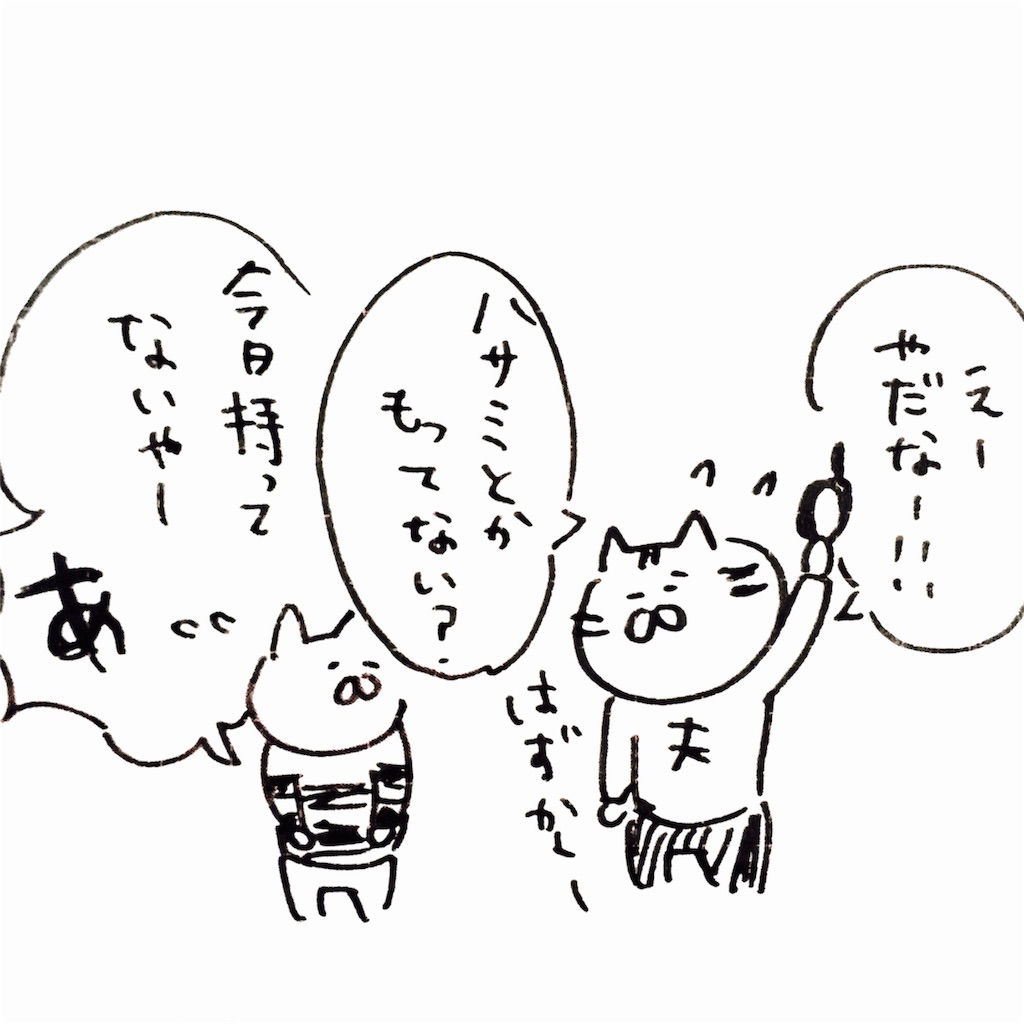 えー
やだなーーー
ハサミとか
もってない?
はずかしー
夫
今日持って
ないやー
あ